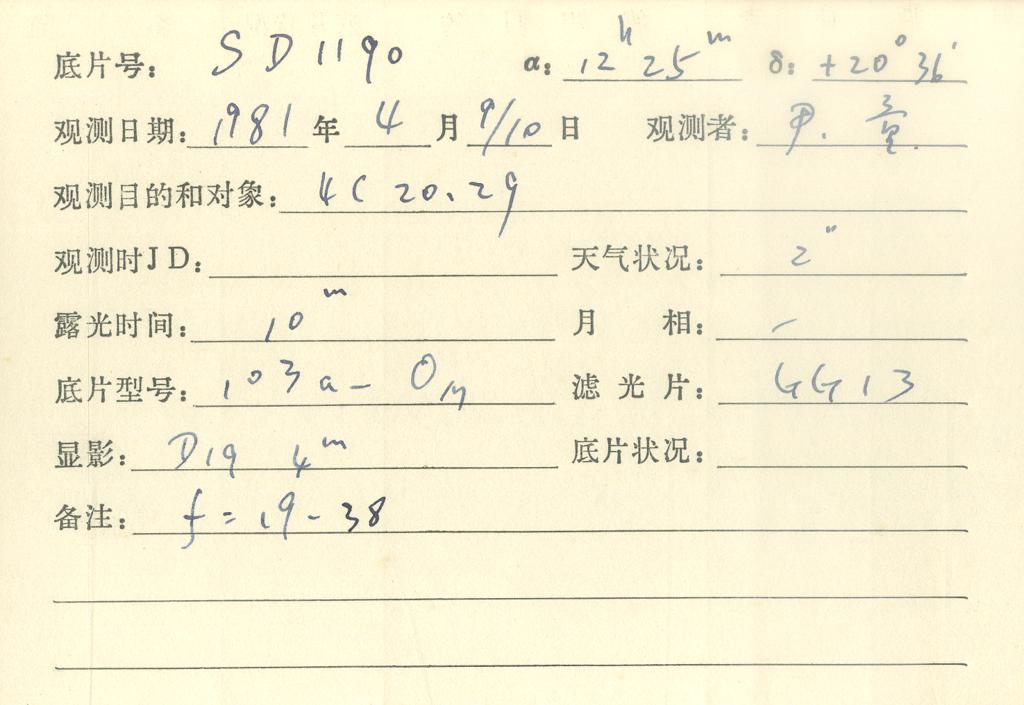 底片号: SD1190 α: 12ʰ 25ᵐ δ: +20° 36′
观测日期: 1981 年 4 月 9/10 日 观测者: 尹. 童.
观测目的和对象: 4C 20.29
观测时JD: 天气状况: 2″
露光时间: 10ᵐ 月 相: –
底片型号: 103a-O 滤光片: GG13
显影: D19 4ᵐ 底片状况:
备注: f = 19-38